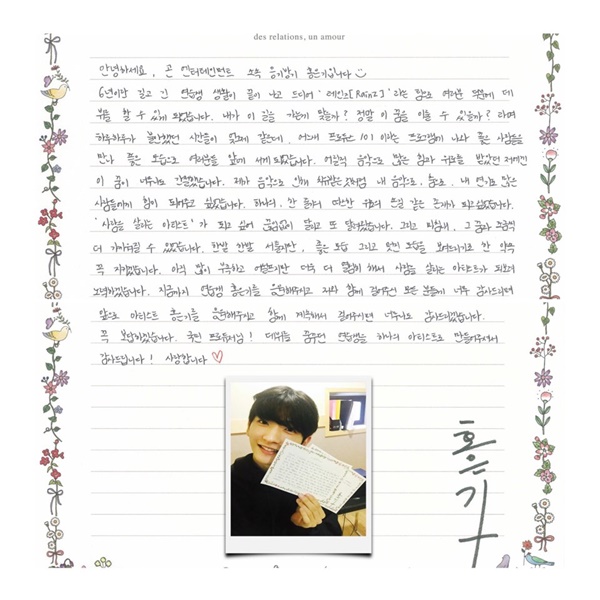 des relations, un amour
안녕하세요, 곤 엔터테인먼트 소속 은기깅이 홍은기입니다
6년이란 길고 긴 연습생 생활이 끝이 나고 드디어 '레인즈[RAINZ]' 라는 팀으로 여러분 앞에 데
뷔를 할 수 있게 되었습니다. 내가 이 길을 가는게 맞을까? 정말 이 꿈을 이룰 수 있을까? 라며
하루하루가 불안했던 시간들이 엊그제 같은데, 어느새 프로듀스 101 이라는 프로그램에 나와 좋은 사람들을
만나 좋은 모습으로 여러분들 앞에 서게 되었습니다. 어릴적 음악으로 많은 힘과 위로를 받았던 저에겐
이 꿈이 너무나도 간절했습니다. 제가 음악으로 인해 살아갔던 것처럼 내 음악으로, 춤으로, 내 연기로 많은
사람들에게 힘이 되어주고 싶었습니다. 하나의, 한 줄기 따스한 구원의 손길 같은 존재가 되고 싶었습니다.
'사람을 살리는 아티스트' 가 되고 싶어 끊임없이 달리고 또 달려왔습니다. 그리고 마침내, 그 꿈과 조금씩
더 가까워질 수 있었습니다. 한발 한발 서툴지만, 좋은 모습 그리고 멋진 모습을 보여드리기로 한 약속
꼭 지키겠습니다. 아직 많이 부족하고 어설프지만 더욱 더 열심히 해서 사람을 살리는 아티스트가 되도록
노력하겠습니다. 지금까지 연습생 홍은기를 응원해주시고 저와 함께 걸어주신 모든 분들께 너무 감사드리며
앞으로 아티스트 홍은기를 응원해주시고 함께 계속해서 걸어주시면 너무나도 감사드리겠습니다.
꼭 보답하겠습니다. 국민 프로듀서님! 데뷔를 꿈꾸던 연습생을 하나의 아티스트로 만들어주셔서
감사드립니다! 사랑합니다
홍은기